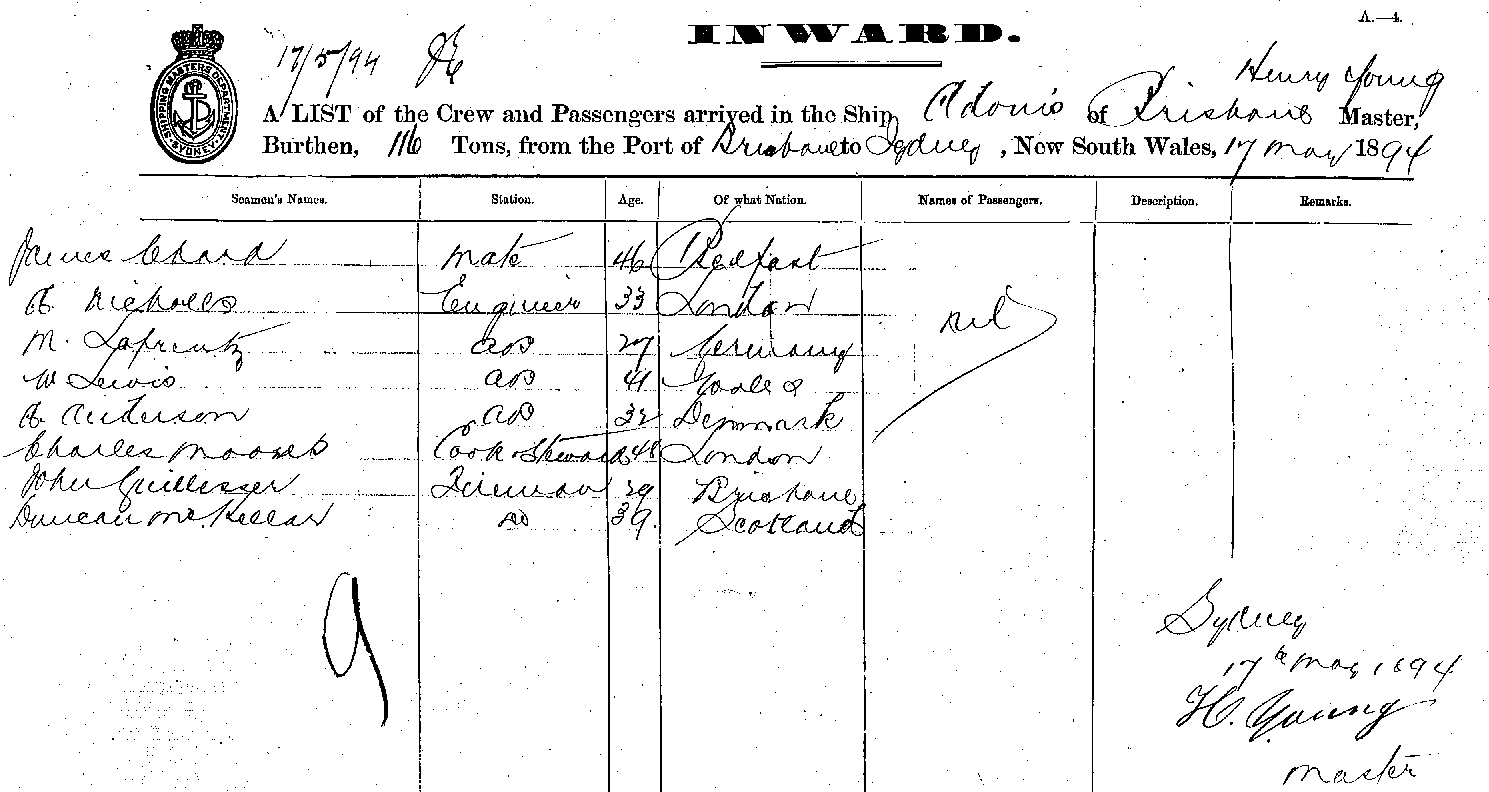 A.—4.
INWARD.
17/5/94
SHIPPING MASTERS DEPARTMENT SYDNEY
Henry Young
A LIST of the Crew and Passengers arrived in the Ship Adonis of Brisbane Master,
Burthen, 116 Tons, from the Port of Brisbane to Sydney, New South Wales, 17 May 1894
Seamen's Names. Station. Age. Of what Nation. Names of Passengers. Description. Remarks.
James Chard Mate 46 Belfast
A Nicholls Engineer 33 London
nil
M. Lafrentz AB 27 Germany
W Lewis AB 41
A Anderson AB 32 Denmark
Charles Cook & Steward 48 London
John Fireman 29 Brisbane
Duncan McKellar do 39. Scotland
9
Sydney
17th May 1894
H. Young
Master